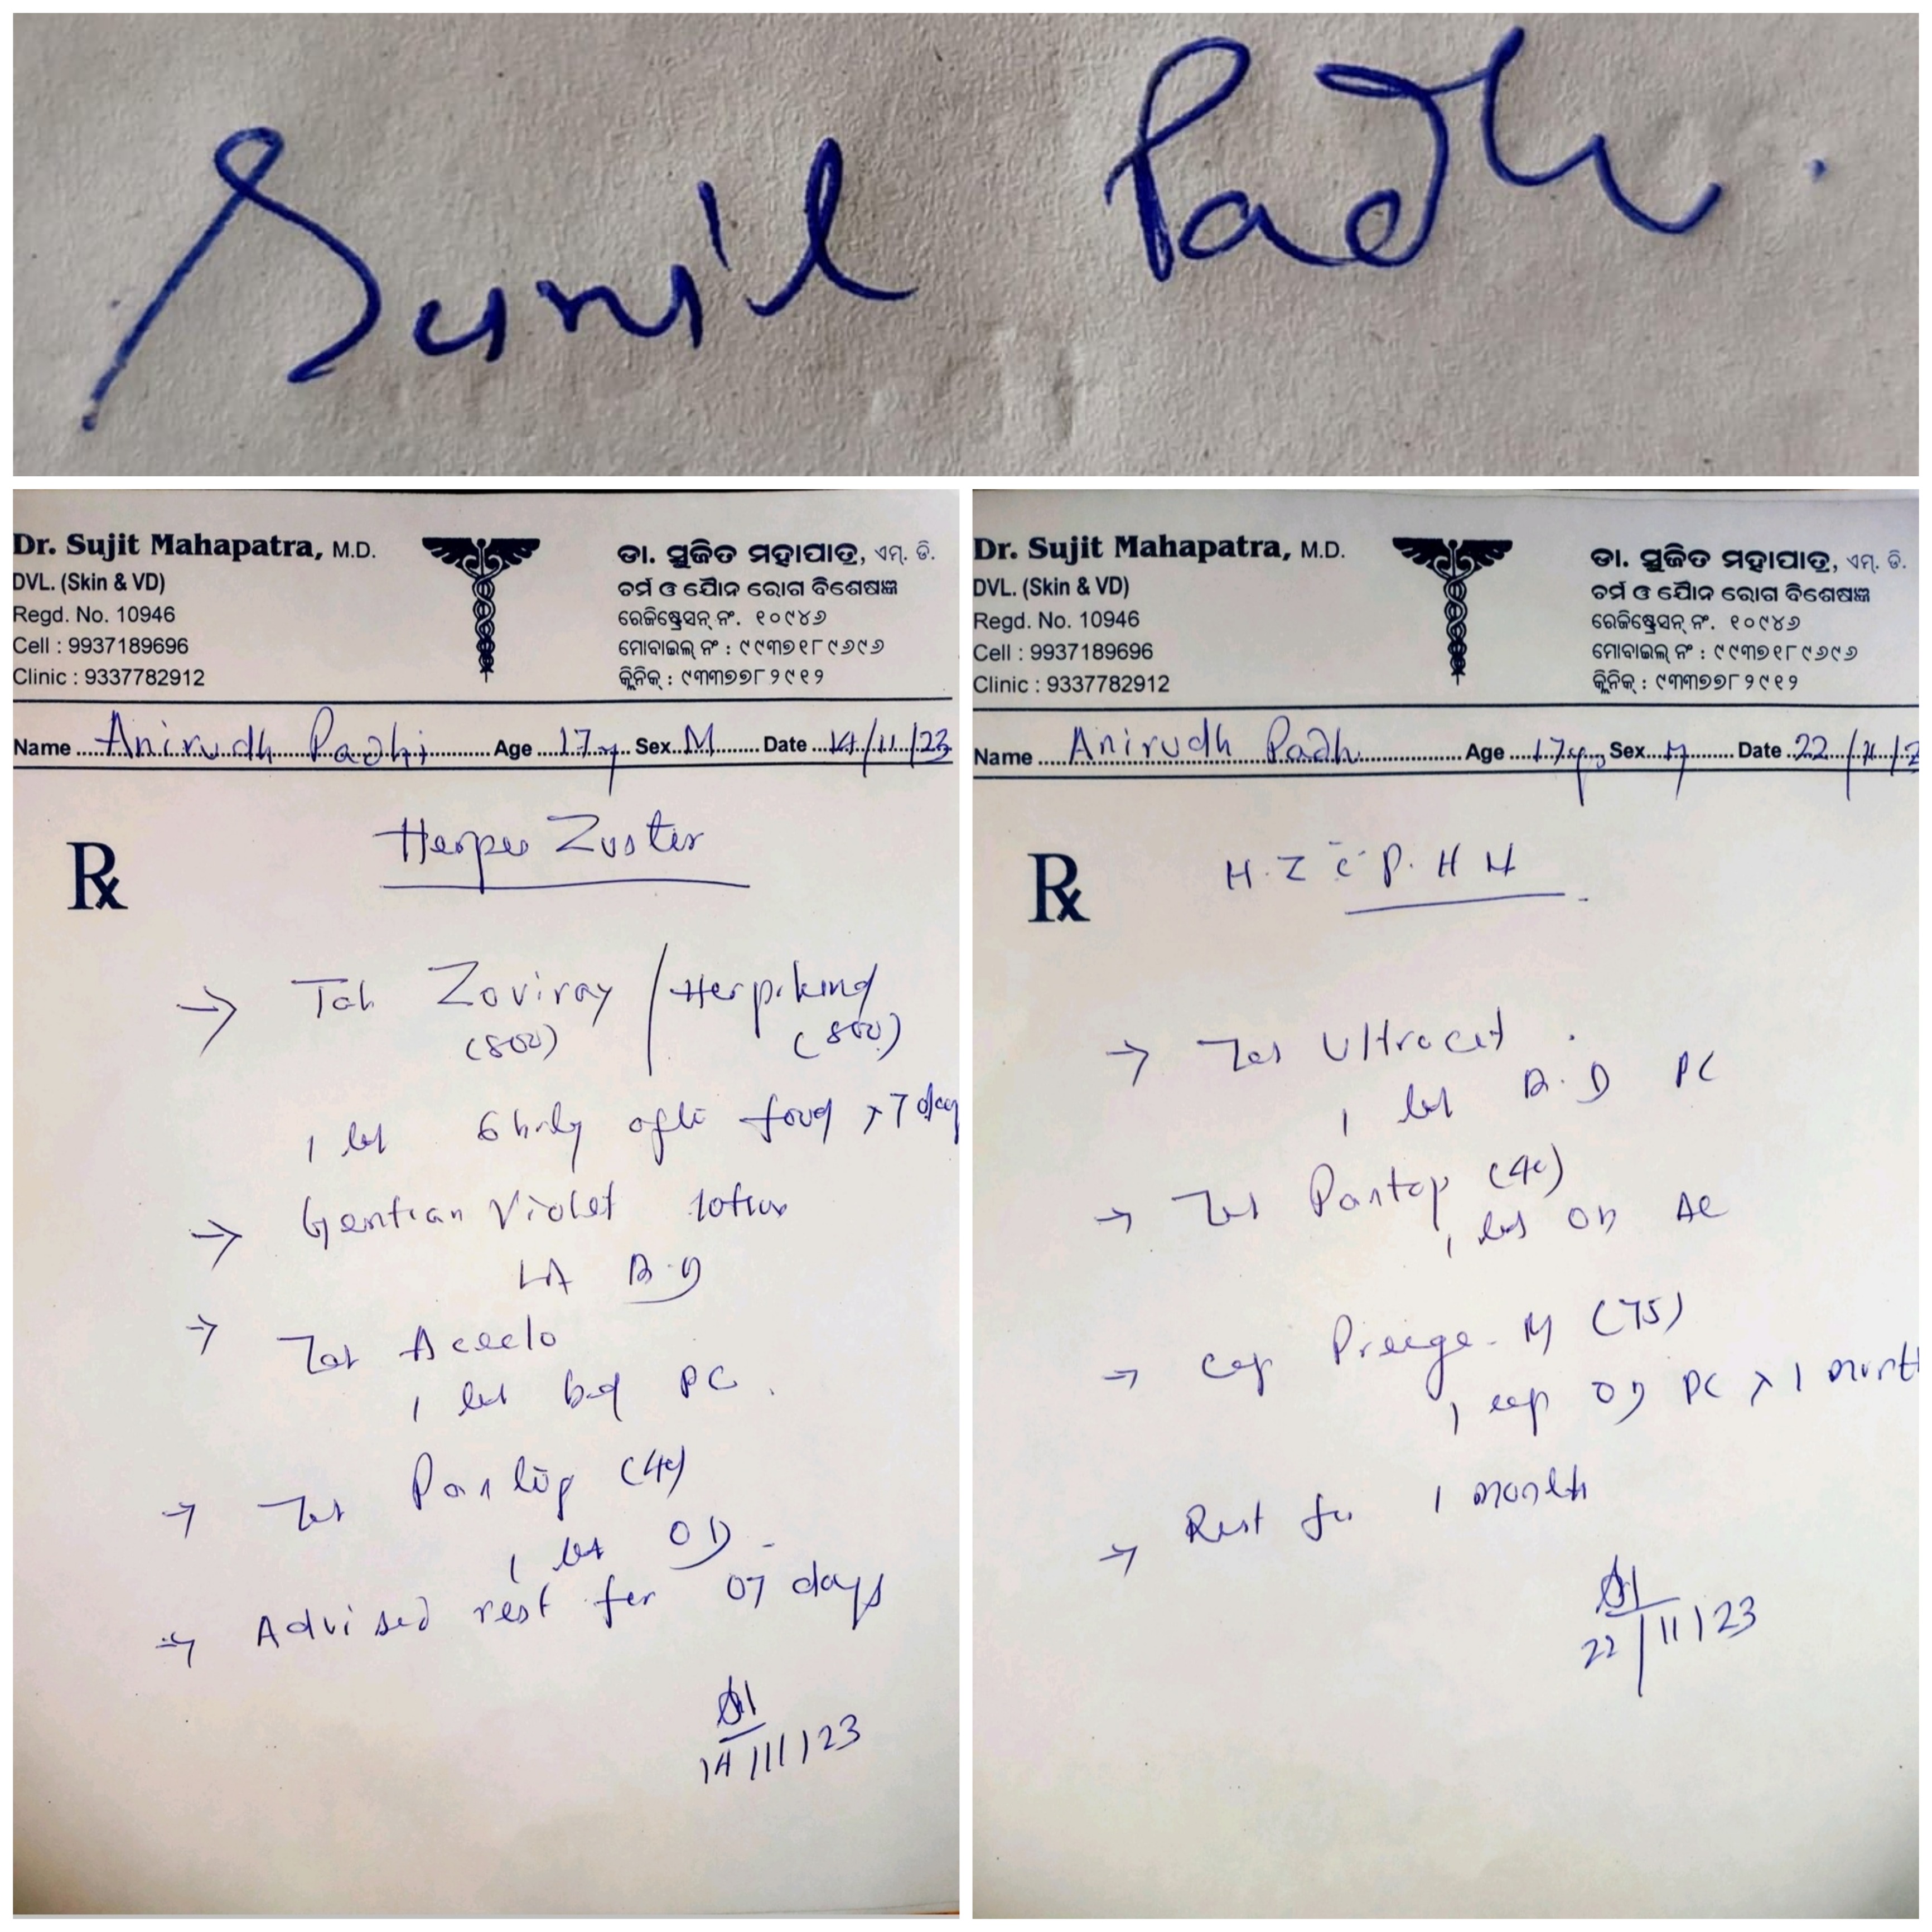 Sunil Padhi
Dr. Sujit Mahapatra, M.D.
DVL. (Skin & VD)
Regd. No. 10946
Cell : 9937189696
Clinic : 9337782912
ଡା. ସୁଜିତ ମହାପାତ୍ର, ଏମ୍. ଡି.
ଚର୍ମ ଓ ଯୌନ ରୋଗ ବିଶେଷଜ୍ଞ
ରେଜିଷ୍ଟ୍ରେସନ୍ ନଂ. ୧୦୯୪୬
ମୋବାଇଲ୍ ନଂ : ୯୯୩୭୧୮୯୬୯୬
କ୍ଲିନିକ୍ : ୯୩୩୭୭୮୨୯୧୨
Name Anirudh Padhi Age 17y Sex M Date 14/11/23
Rx
Herpes Zoster
→ Tab Zovirax / Herpiking
(800) (800)
1 tab 6 hrly after food x 7 day
→ Gentian Violet lotion
LA B.D
→ Tab Aceclo
1 tab bd PC.
→ Tab Pantop (40)
1 tab OD
→ Advised rest for 07 days
14/11/23
Dr. Sujit Mahapatra, M.D.
DVL. (Skin & VD)
Regd. No. 10946
Cell : 9937189696
Clinic : 9337782912
ଡା. ସୁଜିତ ମହାପାତ୍ର, ଏମ୍. ଡି.
ଚର୍ମ ଓ ଯୌନ ରୋଗ ବିଶେଷଜ୍ଞ
ରେଜିଷ୍ଟ୍ରେସନ୍ ନଂ. ୧୦୯୪୬
ମୋବାଇଲ୍ ନଂ : ୯୯୩୭୧୮୯୬୯୬
କ୍ଲିନିକ୍ : ୯୩୩୭୭୮୨୯୧୨
Name Anirudh Padhi Age 17y Sex M Date 22/11/2
Rx
H.Z c̄ P.H N
→ Tab Ultracet
1 tab B.D PC
→ Tab Pantop (40)
1 tab OD AC
→ Cap Preege-M (75)
1 cap OD PC x 1 month
→ Rest for 1 month
22/11/23